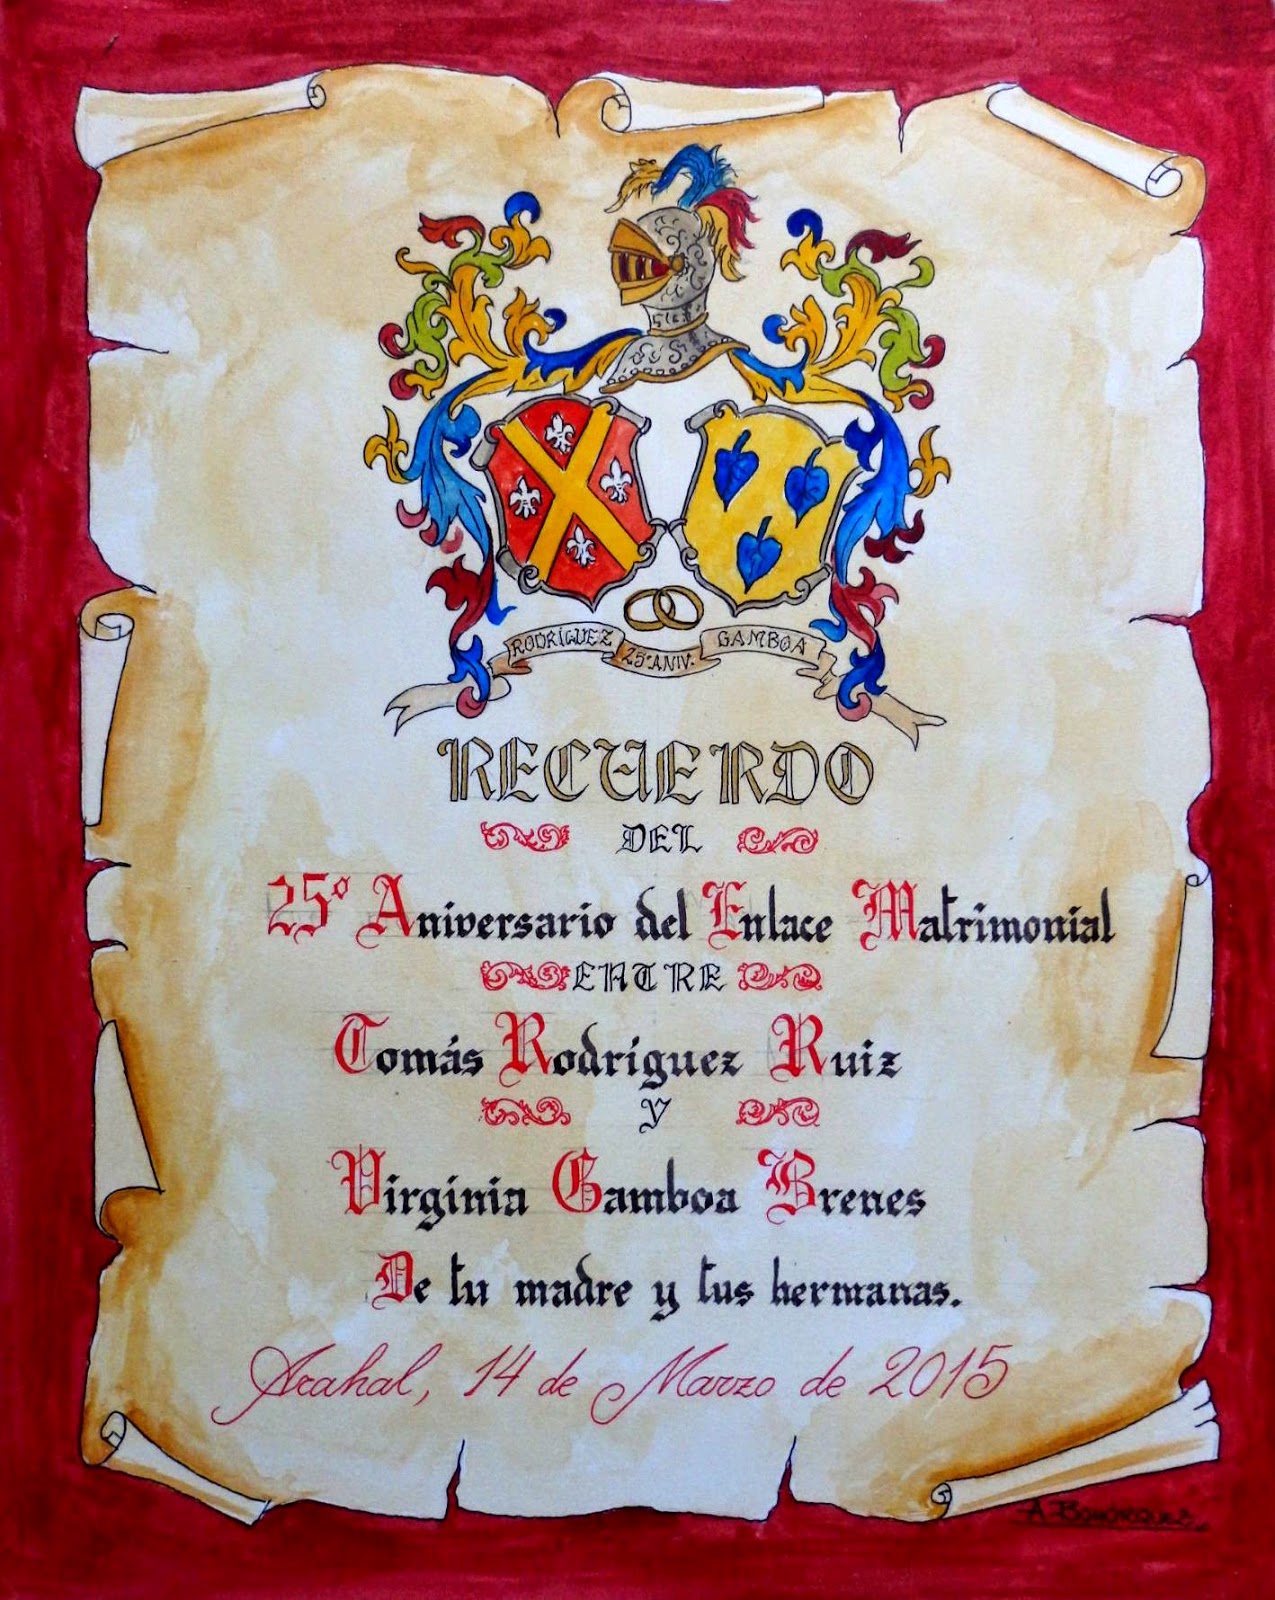 RODRÍGUEZ
25º ANIV.
GAMBOA
RECUERDO
DEL
25º Aniversario del Enlace Matrimonial
ENTRE
Tomás Rodríguez Ruiz
Y
Virginia Gamboa Brenes
De tu madre y tus hermanas.
Arahal, 14 de Marzo de 2015
A. BOHÓRQUEZ